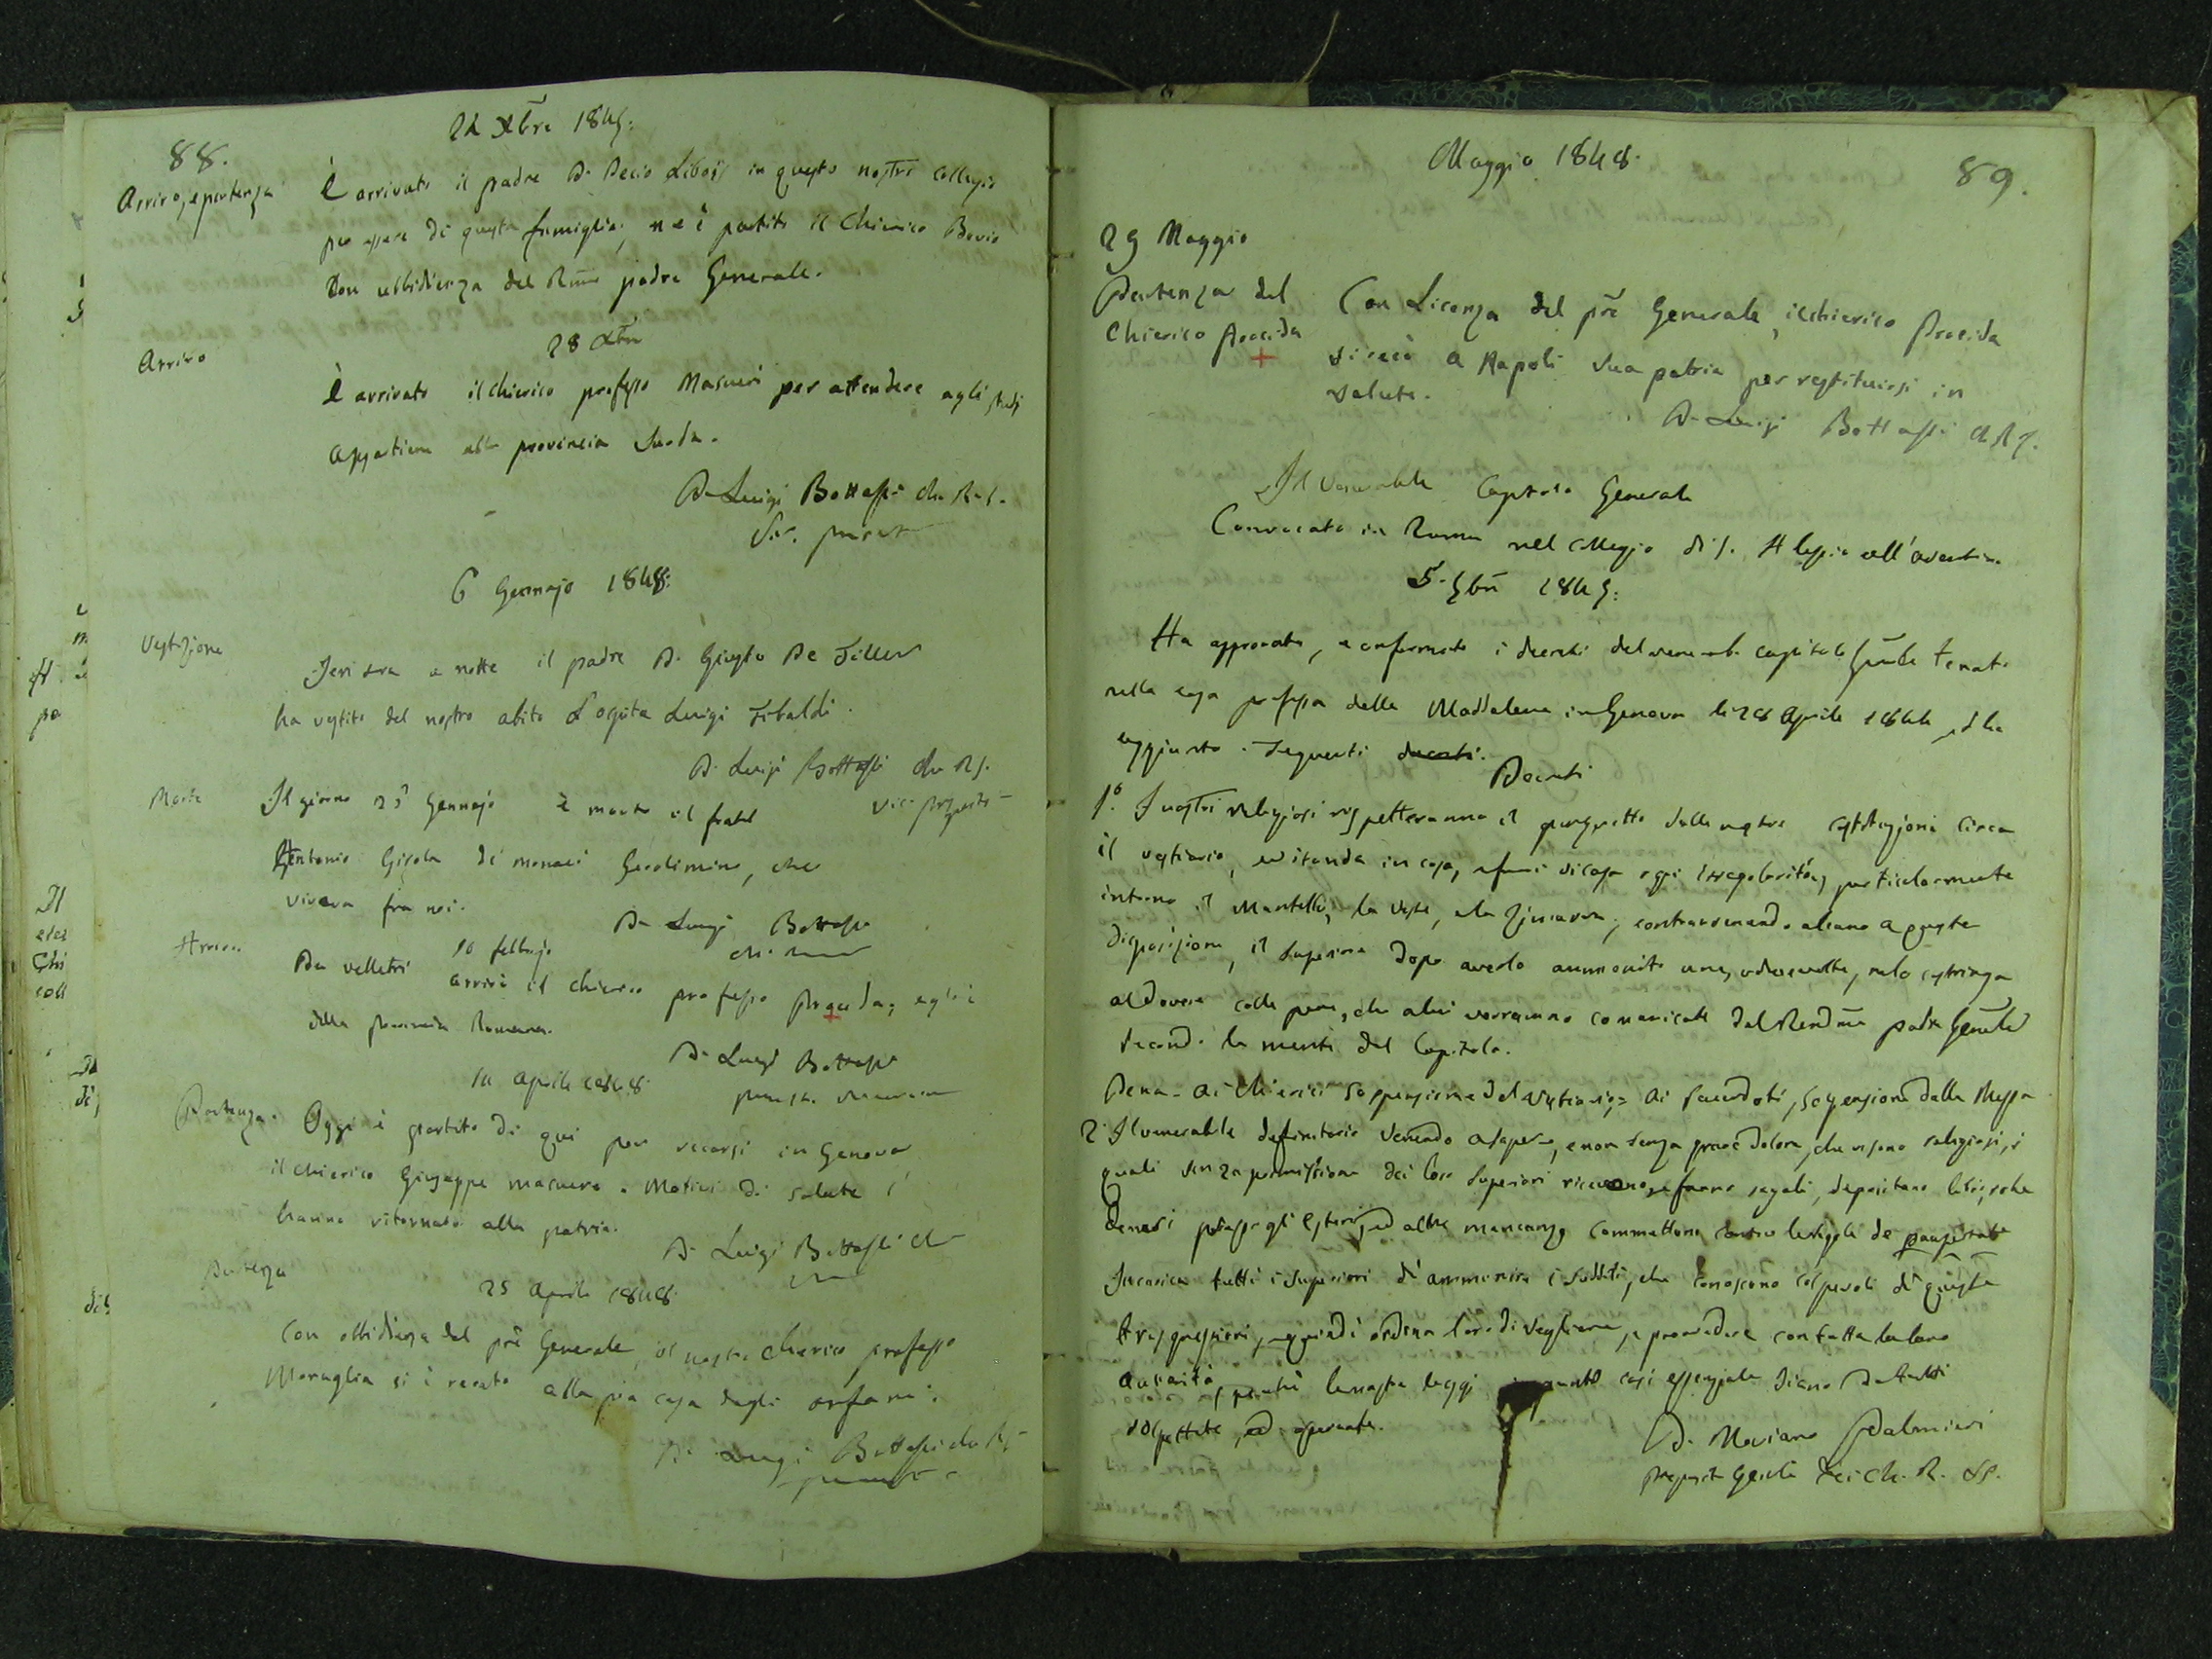 88.
22 Xbre 1847:
Arrivo, e partenza
È arrivato il padre D. Decio Libois in questo nostro Collegio
per essere di questa famiglia, ne è partito il Chierico Bovio
Con ubbidienza del Rmo padre Generale.
28 Xbre
Arrivo
È arrivato il chierico professo Masueri per attendere agli studj
appartiene alla provincia Sarda.
D. Luigi Bottassi Ch. R. S.
6 Gennajo 1848:
Vestizione
Jeri sera a notte il padre D. Giusto De
ha vestito del nostro abito L'ospite Luigi Tibaldi.
D. Luigi Bottassi Ch. R. S.
Vice preposto
Morte
Il giorno 25 Gennajo è morto il fratel
Antonio Girola di monaci Gerolimino, che
viveva fra noi.
D. Luigi Bottassi
Arrivo
10 febbrajo
Da Velletri arrivò il chierico professo Procida; egli è
della provincia Romana.
D. Luigi Bottassi
14 aprile 1848.
Partenza.
Oggi è partito di qui per recarsi in Genova
il chierico Giuseppe masuero. Motivi di salute l'
hanno ritornato alla patria.
D. Luigi Bottassi Ch
Partenza
25 Aprile 1848
Con obbidienza del pre Generale, il nostro Chierico professo
Moraglia si è recato alla pia casa degli orfani.
D. Luigi Bottassi ch. R. S.
Maggio 1848.
89.
29 Maggio
Partenza del
Chierico Procida
Con Licenza del pre Generale, il chierico Procida
si recò a Napoli sua patria per restituirsi in
salute.
D. Luigi Bottassi C. R. S.
Il Venerabile Capitolo Generale
Convocato in Roma nel Collegio di S. Alessio all'aventino
5. 1847:
Ha approvato, e confermato i decreti del venerab. capitolo Gnale tenuto
nella casa professa della Maddalena in Genova li 28 Aprile 1844, ed ha
aggiunto i seguenti decreti.
Decreti
1.° I nostri religiosi rispetteranno il prescritto delle nostre costituzioni circa
il vestiario, evitando in casa, e fuori di casa ogni irregolarità, particolarmente
intorno il Mantello, la veste, e la Zimarra; contravvenendo alcuno a queste
disposizioni, il Superiore dopo averlo ammonito una, o due volte, ve lo costringa
al dovere colle pene, che a lui verranno comunicate dal Rendmo padre Genele
secondo la mente del Capitolo.
Pena - ai Chierici Sospensione del Vestiario; ai Sacerdoti, Sospensione dalla Messa
2.° Il venerabile definitorio venendo a sapere, e non senza grave dolore, che vi sono religiosi, i
quali senza permissione dei loro Superiori ricevono, e fanno regali, depositano libri, robe
denari presso gli Esteri, ed altre mancanze commettono contro le regole de paupertate
Incarica tutti i Superiori di ammonire i Sudditi, che conoscono colpevoli di queste
trasgressioni, e quindi ordina loro di vegliare, e provvedere con tutta la loro
autorità, perchè le nostre leggi in punto così essenziale siano da tutti
rispettate, ed osservate.
D. Mariano Palmieri
Prepost Genle dei Ch. R. SS.